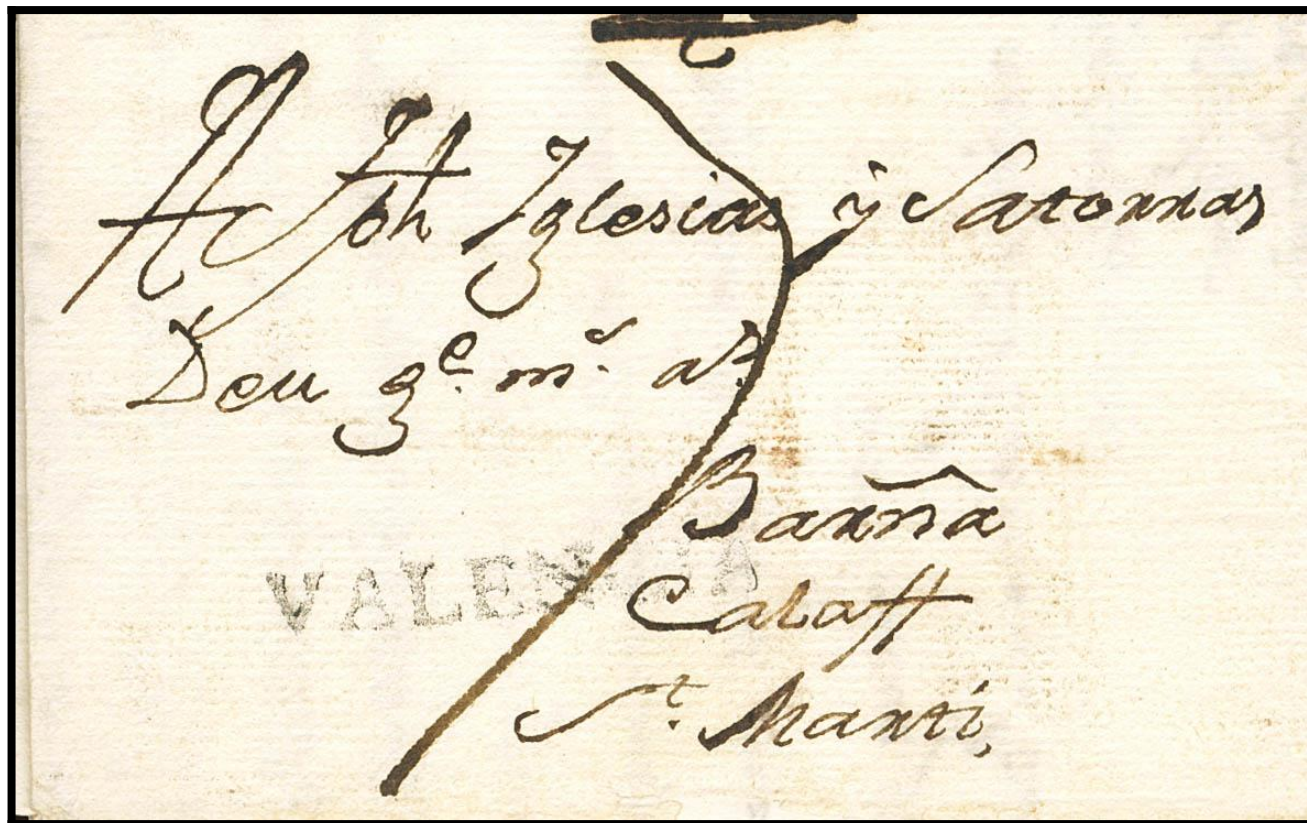 A Jph Iglesias y Satorras
Deu g.e m.s a.s
Barña
VALENCIA
Calaff
S.t Marti,